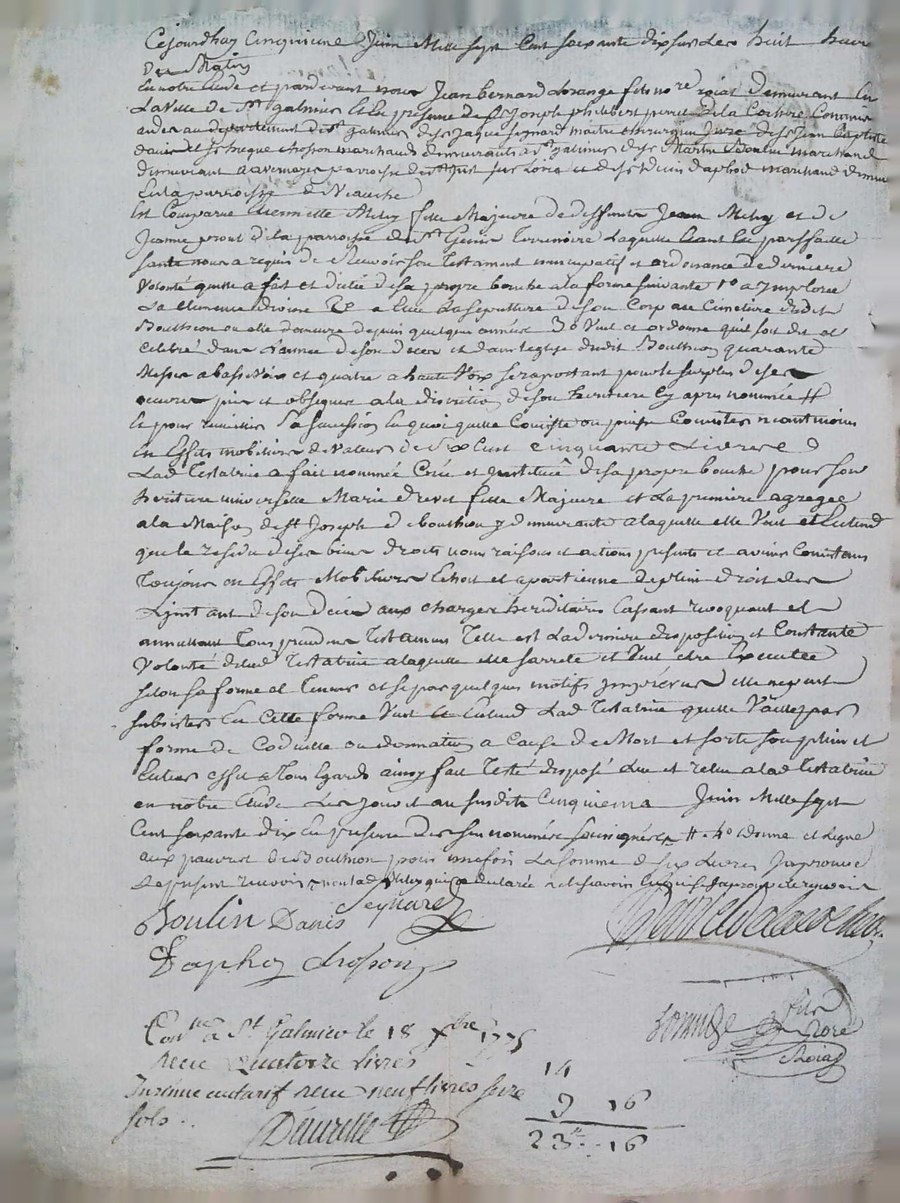 Cejourdhuy cinquieme Juin Mille sept cent soixante dix sur les huit heures
du Matin
En notre Etude et pardevant nous Jean Bernard Lorange fils nore roial demeurant en
La Ville de St galmier Et En presence de Sr Joseph philibert de la Cochere Commis
au departement de St galmier de Sr Jaque Seynard maitre chirurgien Juré de Sr Jean
Danis et Sr chosson marchands demeurants a St galmier de Sr Martin Boulin marchand
demeurant a parroisse de St Just sur Loire et de Sr Daphod marchand
En la parroisse de Veauche
Est Comparue Etiennette Meley fille Majeure de deffunts Jean Meley et de
Jeanne de la parroisse de St Genis Terrenoire Laquelle Etant En parffaitte
santé nous a requis de Recevoir son Testament nuncupatif et ordonnance de derniere
Volonté quelle a fait et dictée de sa propre bouche a la forme suivante 1o a Imploree
La Clemence divine 2o a Elue La sepulture de son Corp au Cimetiere dudit
Bouthion ou elle demeure depuis quelques années 3o Veut et ordonne quil soit dit et
Celebré dans L'année de son deces et dans leglise dudit Bouthion quarante
Messes a basse Voix et quatre a haute Voix se raportant pour le surplus de ses
oeuvres pies et obseques a la discretion de son heritiere Cy apres nommée #
Et pour Sa succession En quoi quelle Consiste ou puisse Consister neantmoins
En Effets mobiliers de Valeur de cent cinquante Livres
Lad Testatrice a fait nommée Crée et Instituée de sa propre bouche pour son
heritiere universelle Marie drevet fille Majeure et La premiere agregée
a la Maison de St Joseph de bouthion y demeurante a laquelle elle Veut et Entend
que le residu de ses biens droits noms raisons et actions presents et avenir Consistans
Toujours en Effets Mobiliers Echoit et apartienne de plein droit des
L'jnstant de son deces aux charges hereditaires Cassant revoquant et
annullant Tous precedens Testamens Telle est La derniere disposition et Constante
Volonté de lad Testatrice a laquelle elle sarrete et Veut etre Executée
selon sa forme et Teneur et si par quelques motifs jmprevus elle ne peut
subsister En Cette forme Veut et Entend Lad Testatrice quelle Vaille par
forme de Codicille ou donnation a Cause de Mort et sorte son plein et
Entier effet a Tous Egards ainsy fait Testé disposé Lue et relue a lad Testatrice
en notre Etude Les jour et an susdits Cinquieme Juin Mille sept
Cent soixante dix En presence des susnommés soussignés # 4o donne et Legue
aux pauvres de Bouthion pour une fois La somme de six Livres
recevoir non lad Meley qui a declarée ne le scavoir
Seynard
Boulin Danis
Daphod chosson
Conlé a St Galmier le 18 xbre 1775
Recu quatorze livres
Insinué au tarif recu neuf livres seize
sols
14
9 16
23 16
Lorange fils
nore
Roial